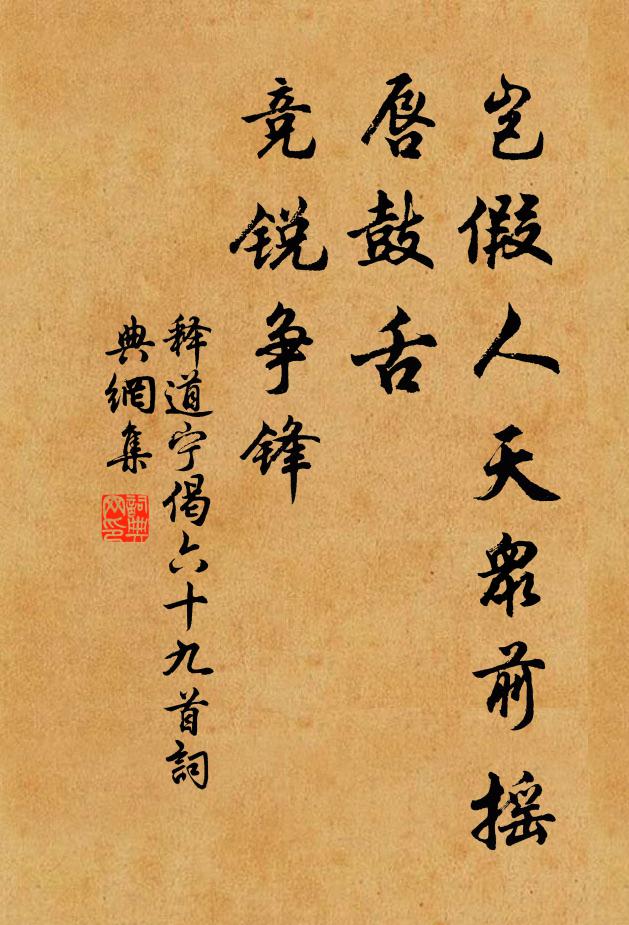 岂假人天眾前摇
唇鼓舌
竞锐争锋
释道宁偈六十九首詞
典網集
詞典
网印